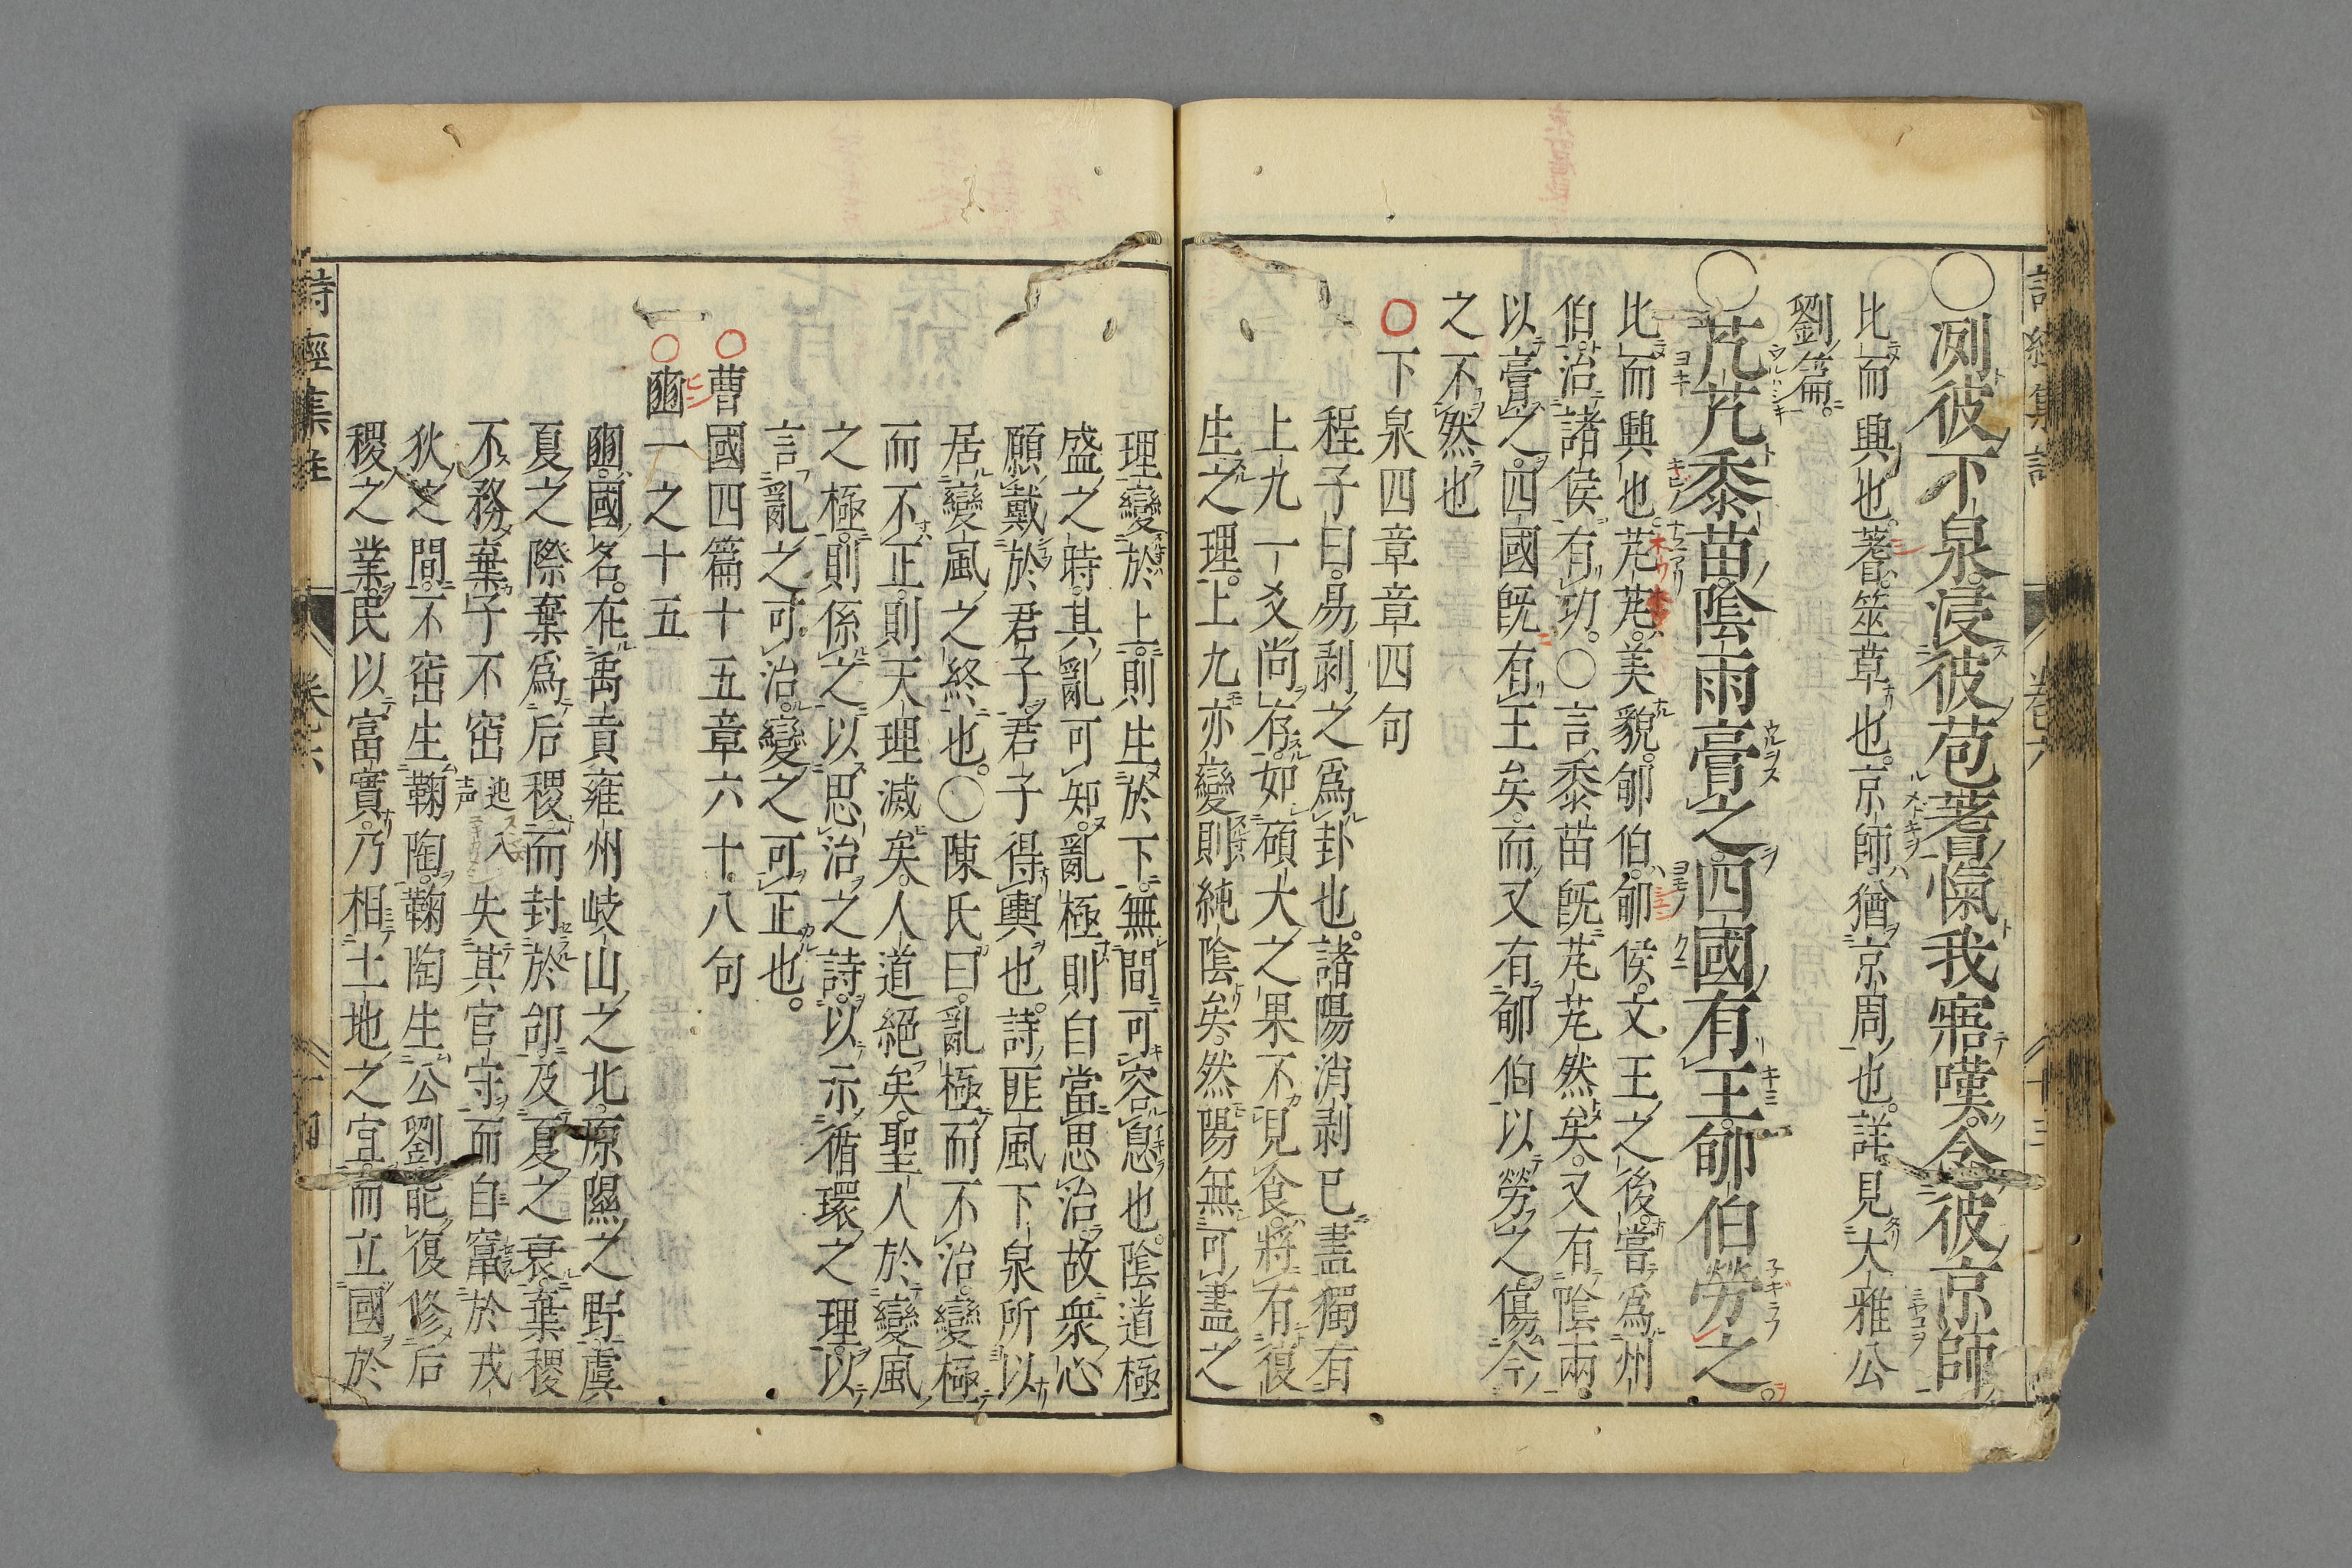 詩經集註 卷六 十三
○冽彼下泉。浸彼苞蓍。愾我寤嘆。念彼京師
比而興也。蓍。筮草也。京師。猶京周也。詳見大雅公
劉篇。
○芃芃黍苗。陰雨膏之。四國有王。郇伯勞之。
比而興也。芃芃。美貌。郇伯。郇侯。文王之後。嘗爲州
伯。治諸侯有功。○言黍苗既芃芃然矣。又有陰雨
以膏之。四國既有王矣。而又有郇伯以勞之。傷今
之不然也
○下泉四章章四句
程子曰。易剥之爲卦也。諸陽消剥已盡。獨有
上九一爻尚存。如碩大之果不見食。將有復
生之理。上九亦變。則純陰矣。然陽無可盡之
理。變於上。則生於下。無間可容息也。陰道極
盛之時。其亂可知。亂極則自當思治。故衆心
願戴於君子。君子得輿也。詩匪風下泉所以
居變風之終也。○陳氏曰。亂極而不治。變極
而不正。則天理滅矣。人道絕矣。聖人於變風
之極。則係之以思治之詩。以示循環之理。以
言亂之可治。變之可正也。
○曹國四篇十五章六十八句
○豳一之十五
豳。國名。在禹貢雍州岐山之北。原隰之野。虞
夏之際。棄爲后稷。而封於邰。及夏之衰。棄稷
不務。棄子不窋失其官守。而自竄於戎
狄之間。不窋生鞠陶。鞠陶生公劉。能復修后
稷之業。民以富實。乃相土地之宜。而立國於
詩經集註 卷六 十四